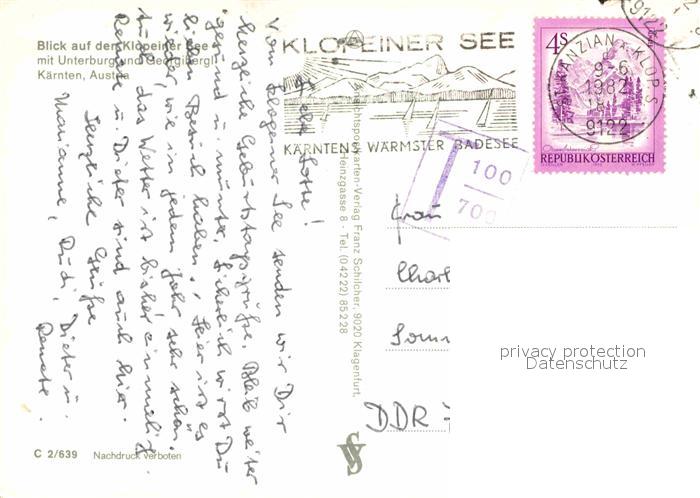 Blick auf den Klopeiner See
mit Unterburg und Georgibergl
Kärnten, Austria
KLOPEINER SEE
KÄRNTENS WÄRMSTER BADESEE
ST. KANZIAN A. KLOP. S.
9-6
1982
18
9122
9122
4S
REPUBLIK ÖSTERREICH
T
100
70g
Liebe Lotte!
Vom Klopeiner See senden wir Dir
herzliche Geburtstagsgrüße. Bleib weiter
gesund u. munter. Sicherlich wirst Du
lieben Besuch haben. Hier ist es
wieder, wie in jedem Jahr sehr schön.
Auch das Wetter ist bisher einmalig.
Renate u. Dieter sind auch hier.
Herzliche Grüße
Marianne, Rudi, Dieter u.
Renate.
Ansichtspostkarten-Verlag Franz Schilcher, 9020 Klagenfurt,
Heinzgasse 8 · Tel. (04222) 85228
Frau
Charl
Somm
DDR -
privacy protection
Datenschutz
C 2/639 Nachdruck verboten